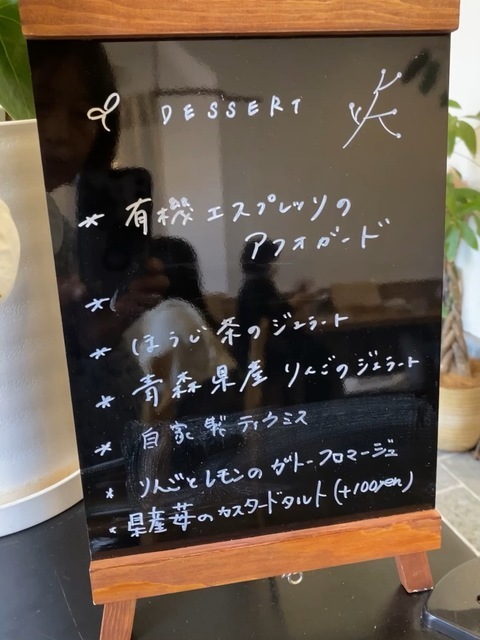 DESSERT
* 有機エスプレッソの
アフォガード
*(
* ほうじ茶のジェラート
* 青森県産りんごのジェラート
* 自家製ティラミス
* りんごとレモンのガトーフロマージュ
* 県産苺のカスタードタルト(+100yen)